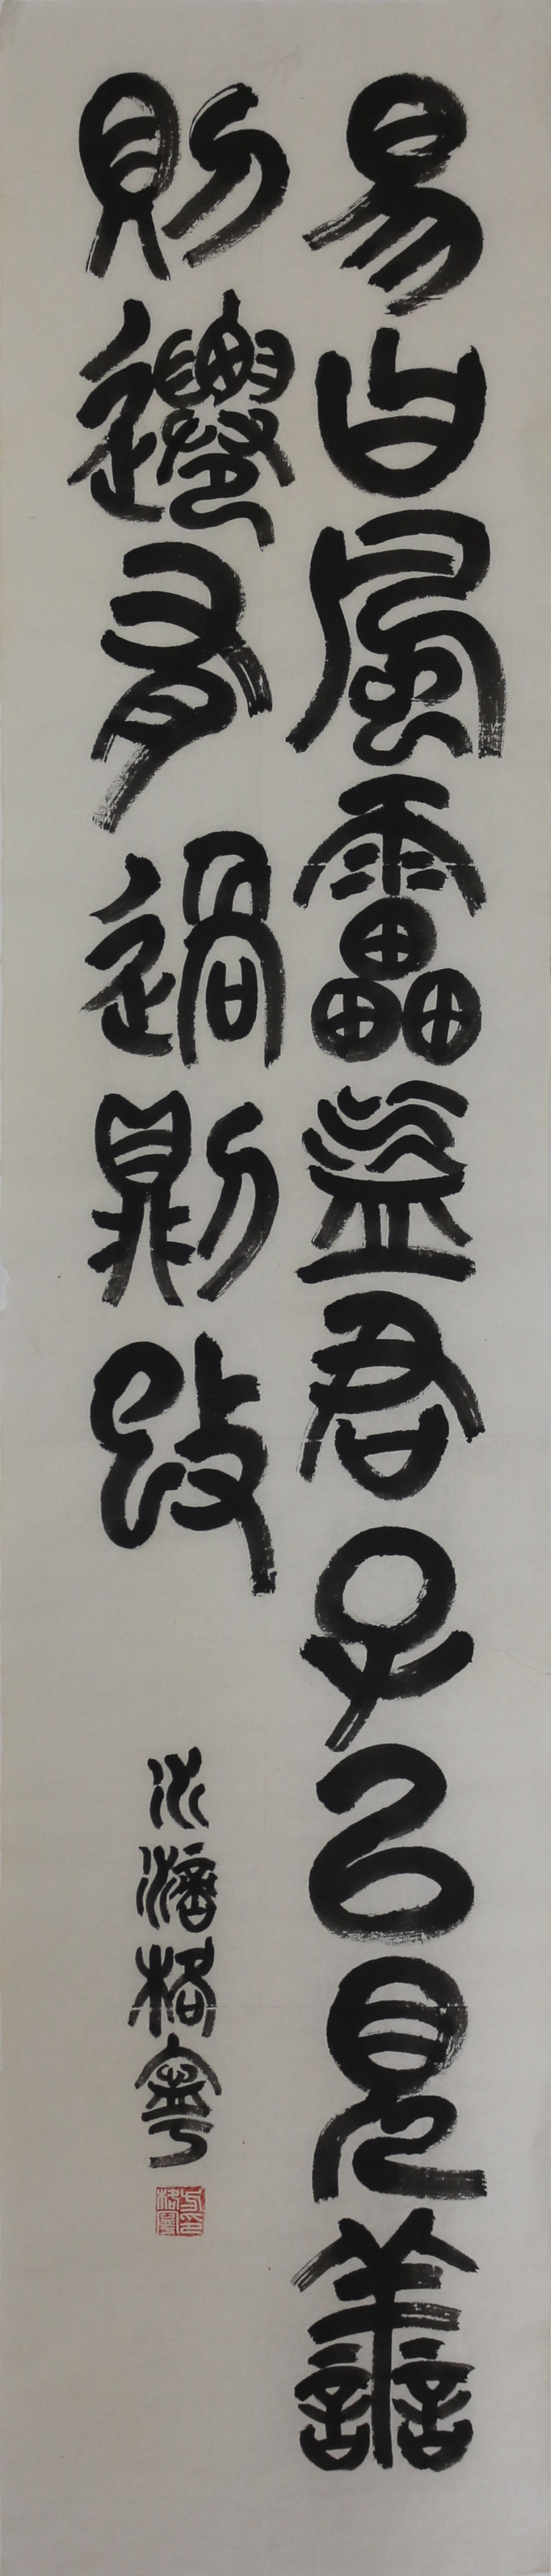 易曰風雷益君子以見善
則遷有過則改
格粵